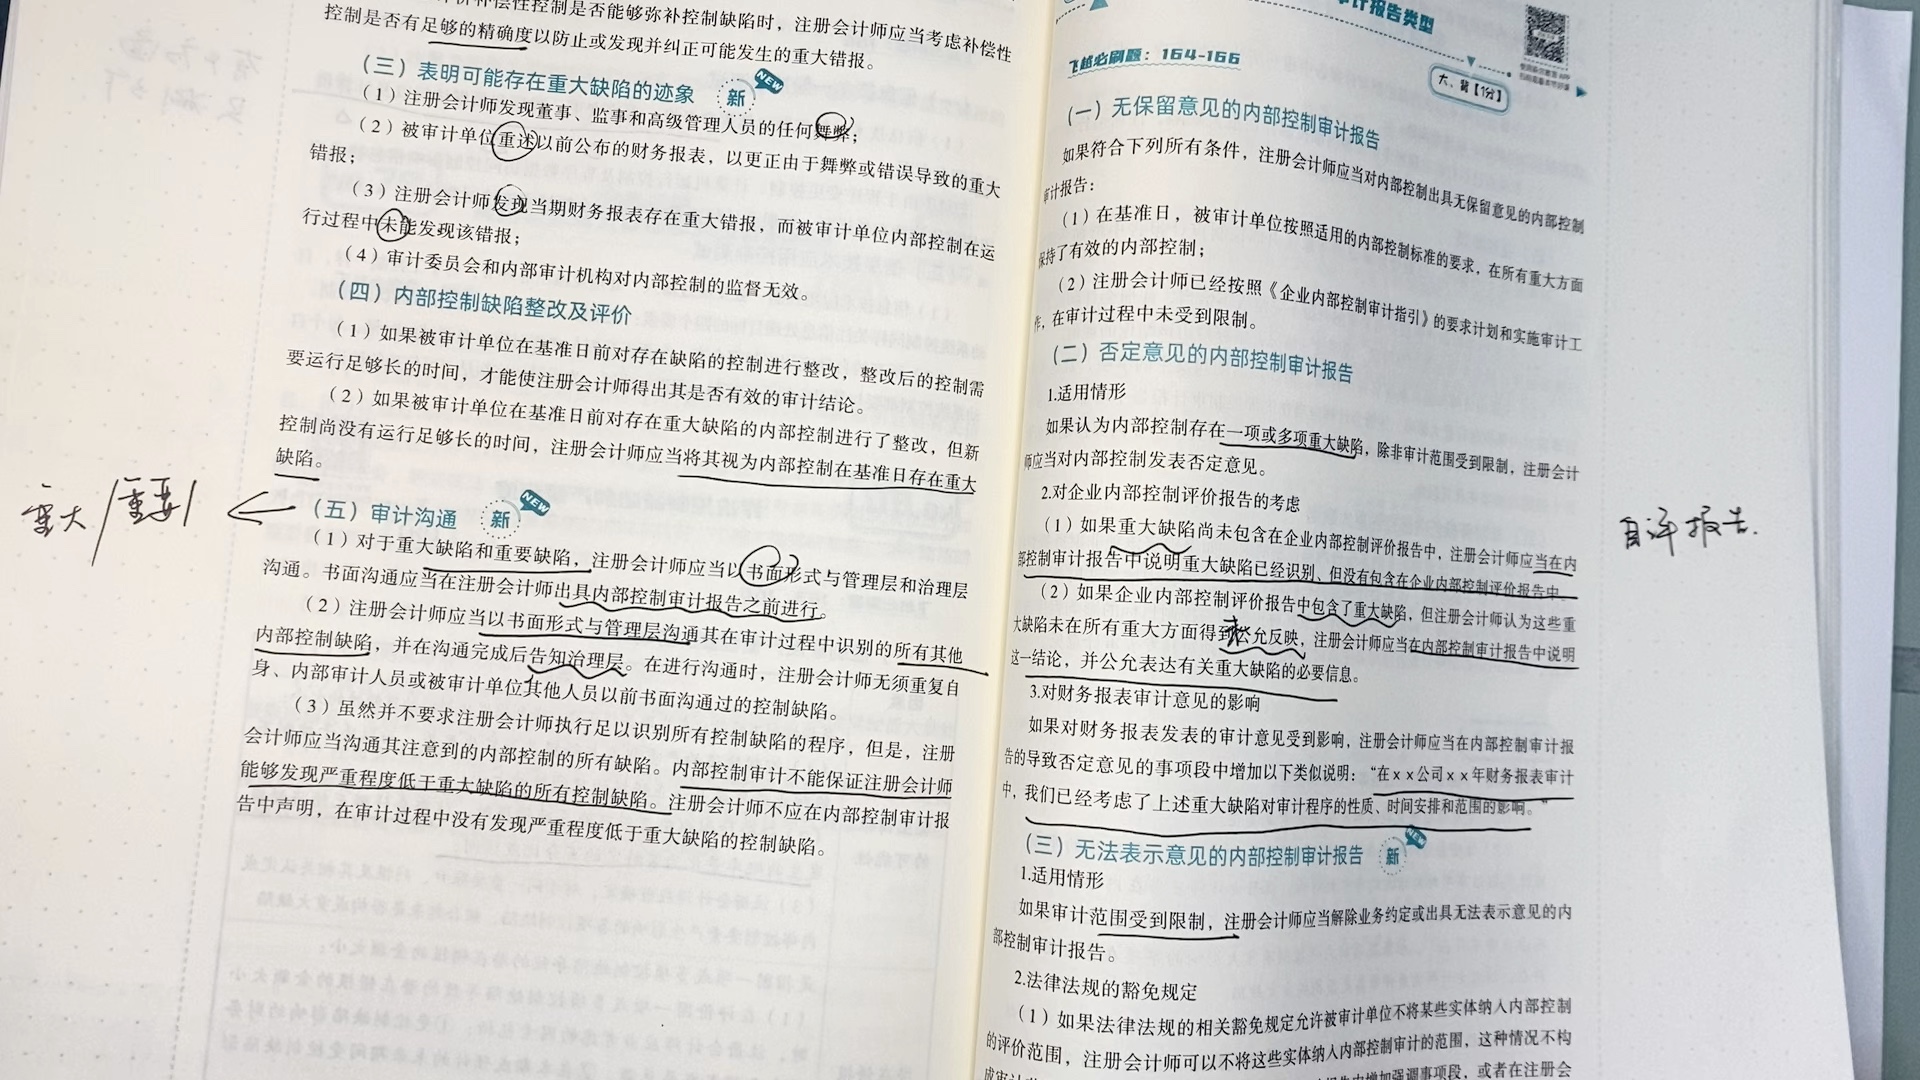 补偿性控制是否能够弥补控制缺陷时，注册会计师应当考虑补偿性
控制是否有足够的精确度以防止或发现并纠正可能发生的重大错报。
（三）表明可能存在重大缺陷的迹象 新 NEW
（1）注册会计师发现董事、监事和高级管理人员的任何舞弊；
（2）被审计单位重述以前公布的财务报表，以更正由于舞弊或错误导致的重大
错报；
（3）注册会计师发现当期财务报表存在重大错报，而被审计单位内部控制在运
行过程中未能发现该错报；
（4）审计委员会和内部审计机构对内部控制的监督无效。
（四）内部控制缺陷整改及评价
（1）如果被审计单位在基准日前对存在缺陷的控制进行整改，整改后的控制需
要运行足够长的时间，才能使注册会计师得出其是否有效的审计结论。
（2）如果被审计单位在基准日前对存在重大缺陷的内部控制进行了整改，但新
控制尚没有运行足够长的时间，注册会计师应当将其视为内部控制在基准日存在重大
缺陷。
重大/重要
（五）审计沟通 新 NEW
（1）对于重大缺陷和重要缺陷，注册会计师应当以书面形式与管理层和治理层
沟通。书面沟通应当在注册会计师出具内部控制审计报告之前进行。
（2）注册会计师应当以书面形式与管理层沟通其在审计过程中识别的所有其他
内部控制缺陷，并在沟通完成后告知治理层。在进行沟通时，注册会计师无须重复自
身、内部审计人员或被审计单位其他人员以前书面沟通过的控制缺陷。
（3）虽然并不要求注册会计师执行足以识别所有控制缺陷的程序，但是，注册
会计师应当沟通其注意到的内部控制的所有缺陷。内部控制审计不能保证注册会计师
能够发现严重程度低于重大缺陷的所有控制缺陷。注册会计师不应在内部控制审计报
告中声明，在审计过程中没有发现严重程度低于重大缺陷的控制缺陷。
审计报告类型
飞越必刷题：164-166
大、背【1分】
（一）无保留意见的内部控制审计报告
如果符合下列所有条件，注册会计师应当对内部控制出具无保留意见的内部控制
审计报告：
（1）在基准日，被审计单位按照适用的内部控制标准的要求，在所有重大方面
保持了有效的内部控制；
（2）注册会计师已经按照《企业内部控制审计指引》的要求计划和实施审计工
作，在审计过程中未受到限制。
（二）否定意见的内部控制审计报告
1.适用情形
如果认为内部控制存在一项或多项重大缺陷，除非审计范围受到限制，注册会计
师应当对内部控制发表否定意见。
2.对企业内部控制评价报告的考虑
（1）如果重大缺陷尚未包含在企业内部控制评价报告中，注册会计师应当在内
部控制审计报告中说明重大缺陷已经识别、但没有包含在企业内部控制评价报告中。
自评报告.
（2）如果企业内部控制评价报告中包含了重大缺陷，但注册会计师认为这些重
大缺陷未在所有重大方面得到公允反映，注册会计师应当在内部控制审计报告中说明
这一结论，并公允表达有关重大缺陷的必要信息。
3.对财务报表审计意见的影响
如果对财务报表发表的审计意见受到影响，注册会计师应当在内部控制审计报
告的导致否定意见的事项段中增加以下类似说明：“在××公司××年财务报表审计
中，我们已经考虑了上述重大缺陷对审计程序的性质、时间安排和范围的影响。”
（三）无法表示意见的内部控制审计报告 新 NEW
1.适用情形
如果审计范围受到限制，注册会计师应当解除业务约定或出具无法表示意见的内
部控制审计报告。
2.法律法规的豁免规定
（1）如果法律法规的相关豁免规定允许被审计单位不将某些实体纳入内部控制
的评价范围，注册会计师可以不将这些实体纳入内部控制审计的范围，这种情况不构
增加强调事项段，或者在注册会